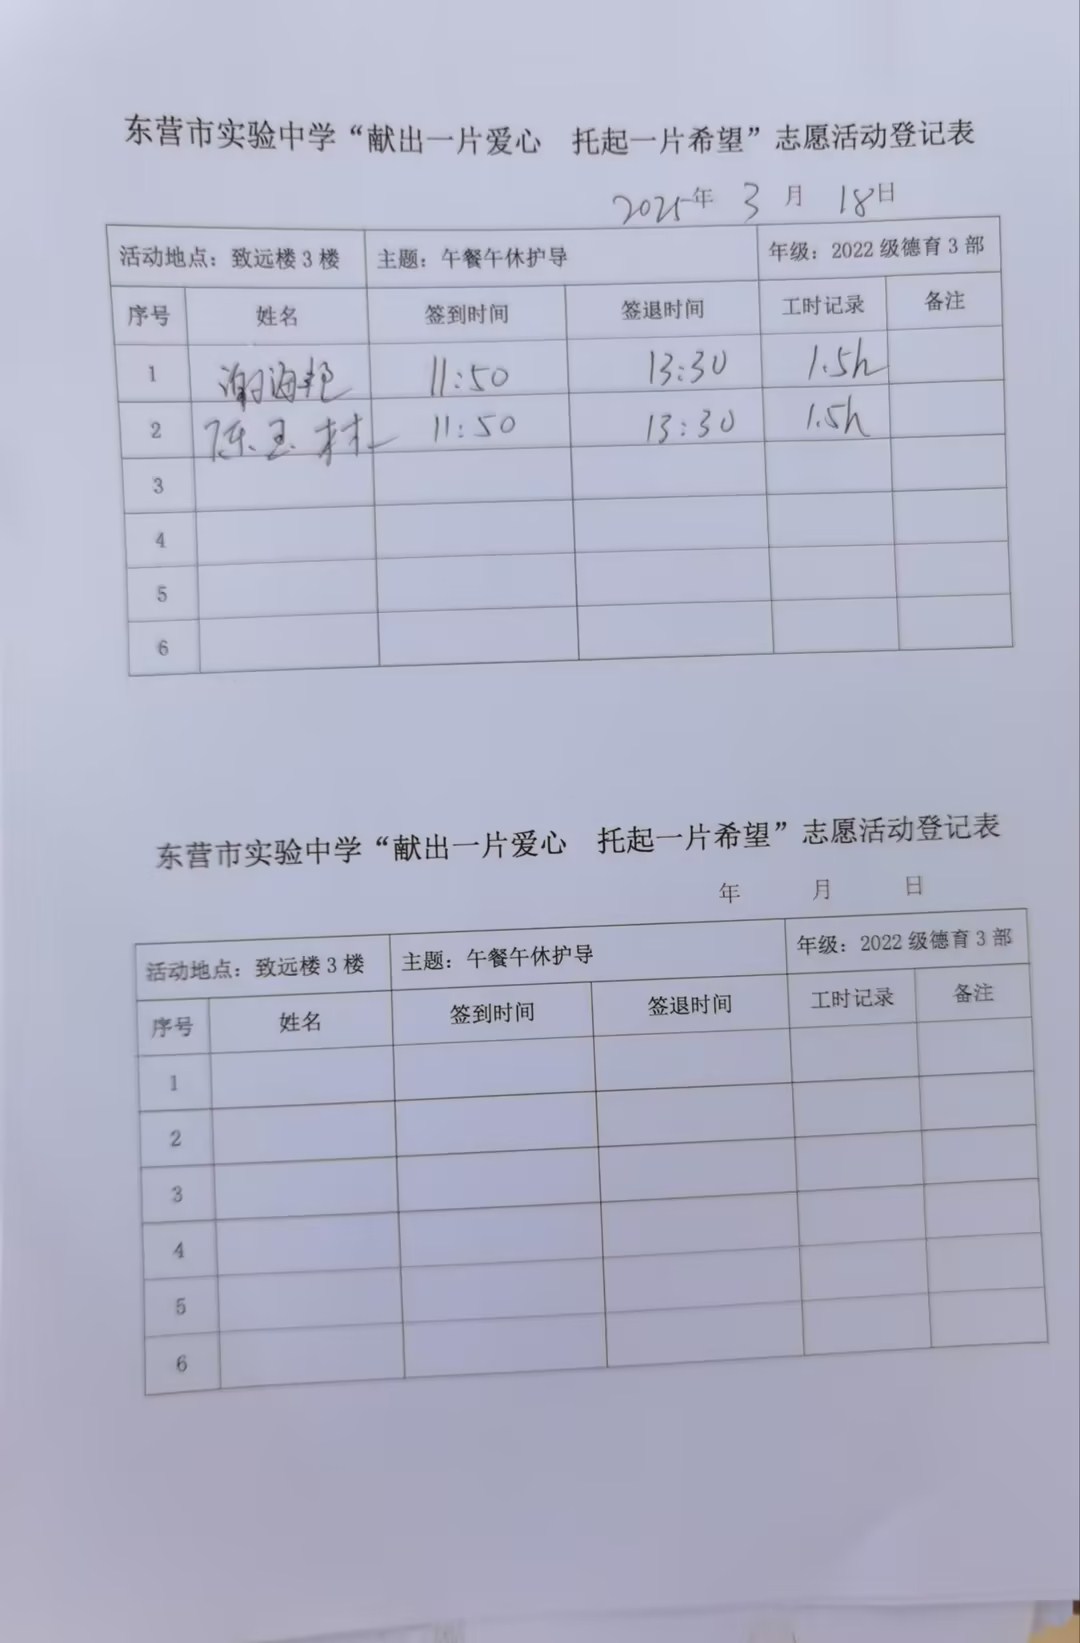 东营市实验中学“献出一片爱心 托起一片希望”志愿活动登记表
2025年 3 月 18日
活动地点：致远楼3楼 主题：午餐午休护导 年级：2022级德育3部
序号 姓名 签到时间 签退时间 工时记录 备注
1 谢海艳 11:50 13:30 1.5h
2 陈玉村 11:50 13:30 1.5h
3
4
5
6
东营市实验中学“献出一片爱心 托起一片希望”志愿活动登记表
年 月 日
活动地点：致远楼3楼 主题：午餐午休护导 年级：2022级德育3部
序号 姓名 签到时间 签退时间 工时记录 备注
1
2
3
4
5
6